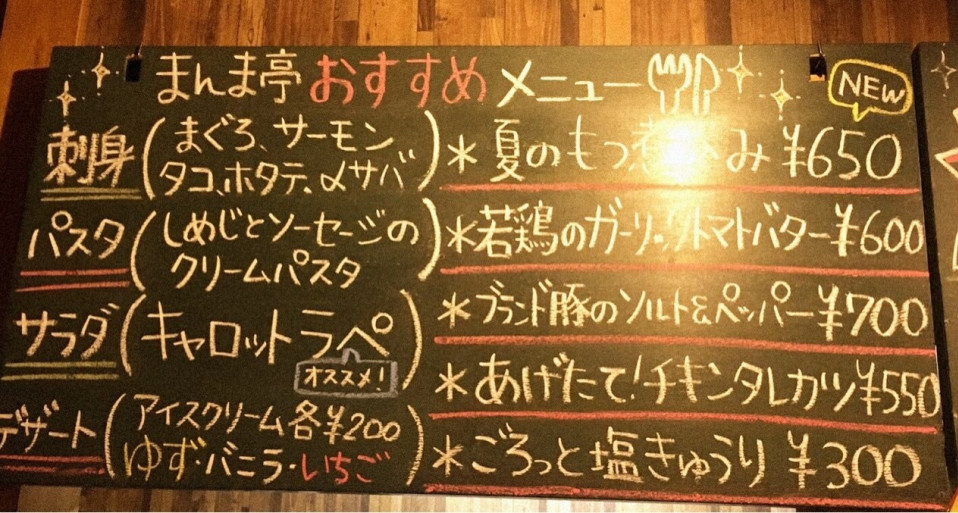 まんま亭 おすすめ メニュー
NEW
刺身(まぐろ、サーモン
タコ、ホタテ、〆サバ)
パスタ(しめじとソーセージの
クリームパスタ)
サラダ(キャロットラペ)
オススメ!
デザート(アイスクリーム各¥200
ゆず・バニラ・いちご)
*夏のもつ煮込み ¥650
*若鶏のガーリックトマトバター ¥600
*ブランド豚のソルト&ペッパー ¥700
*あげたて!チキンタレカツ ¥550
*ごろっと塩きゅうり ¥300